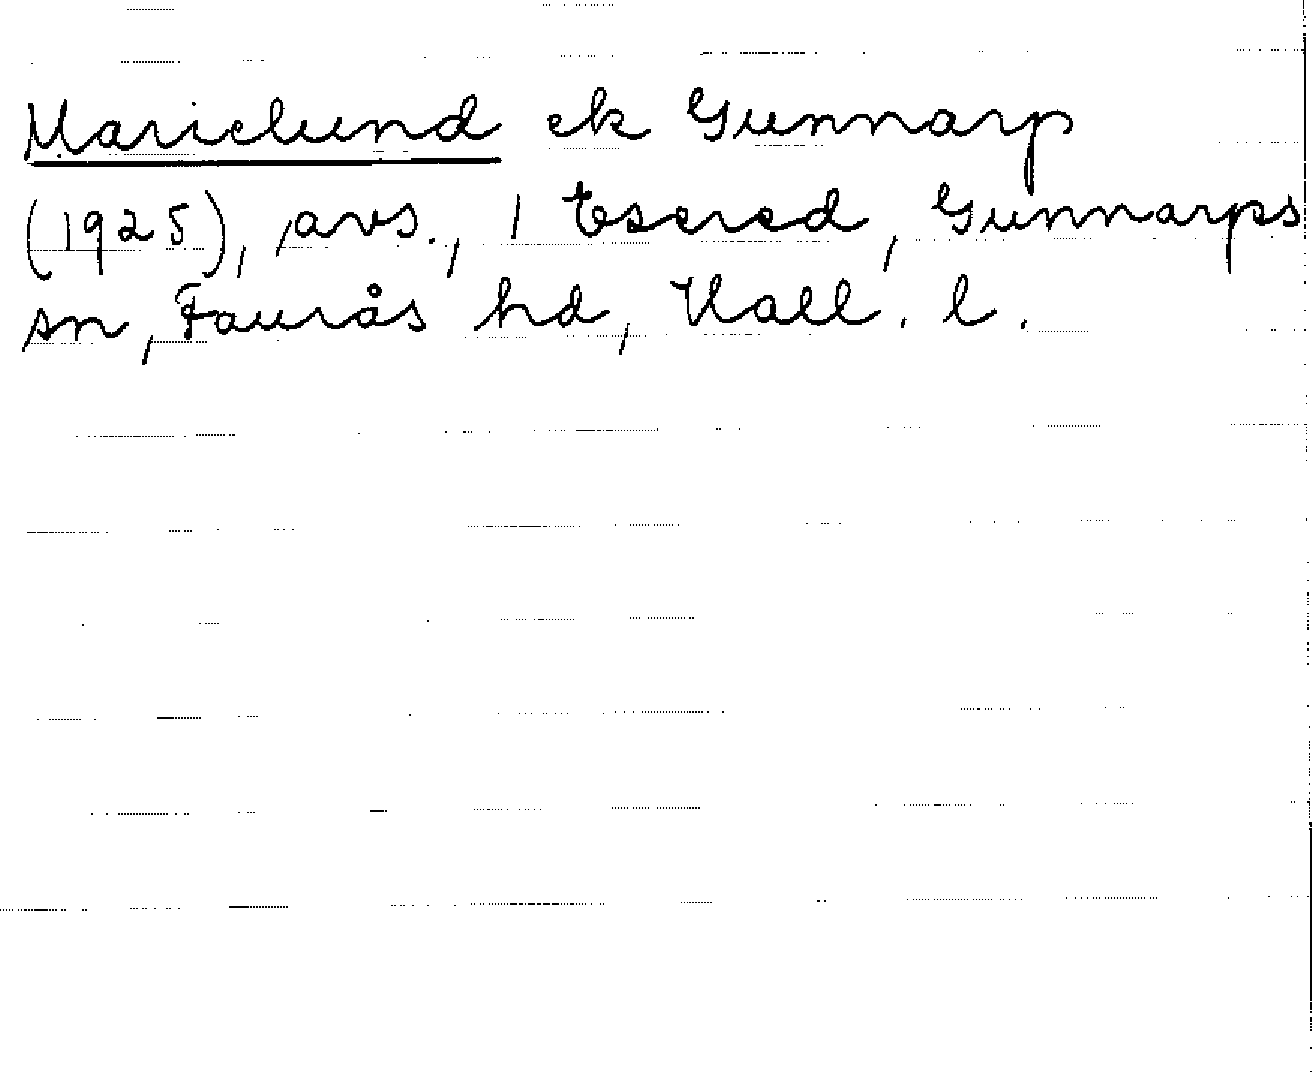 Marielund ek Gunnarp
(1925), avs., 1 Esered, Gunnarps
sn, Faurås hd, Hall. l.